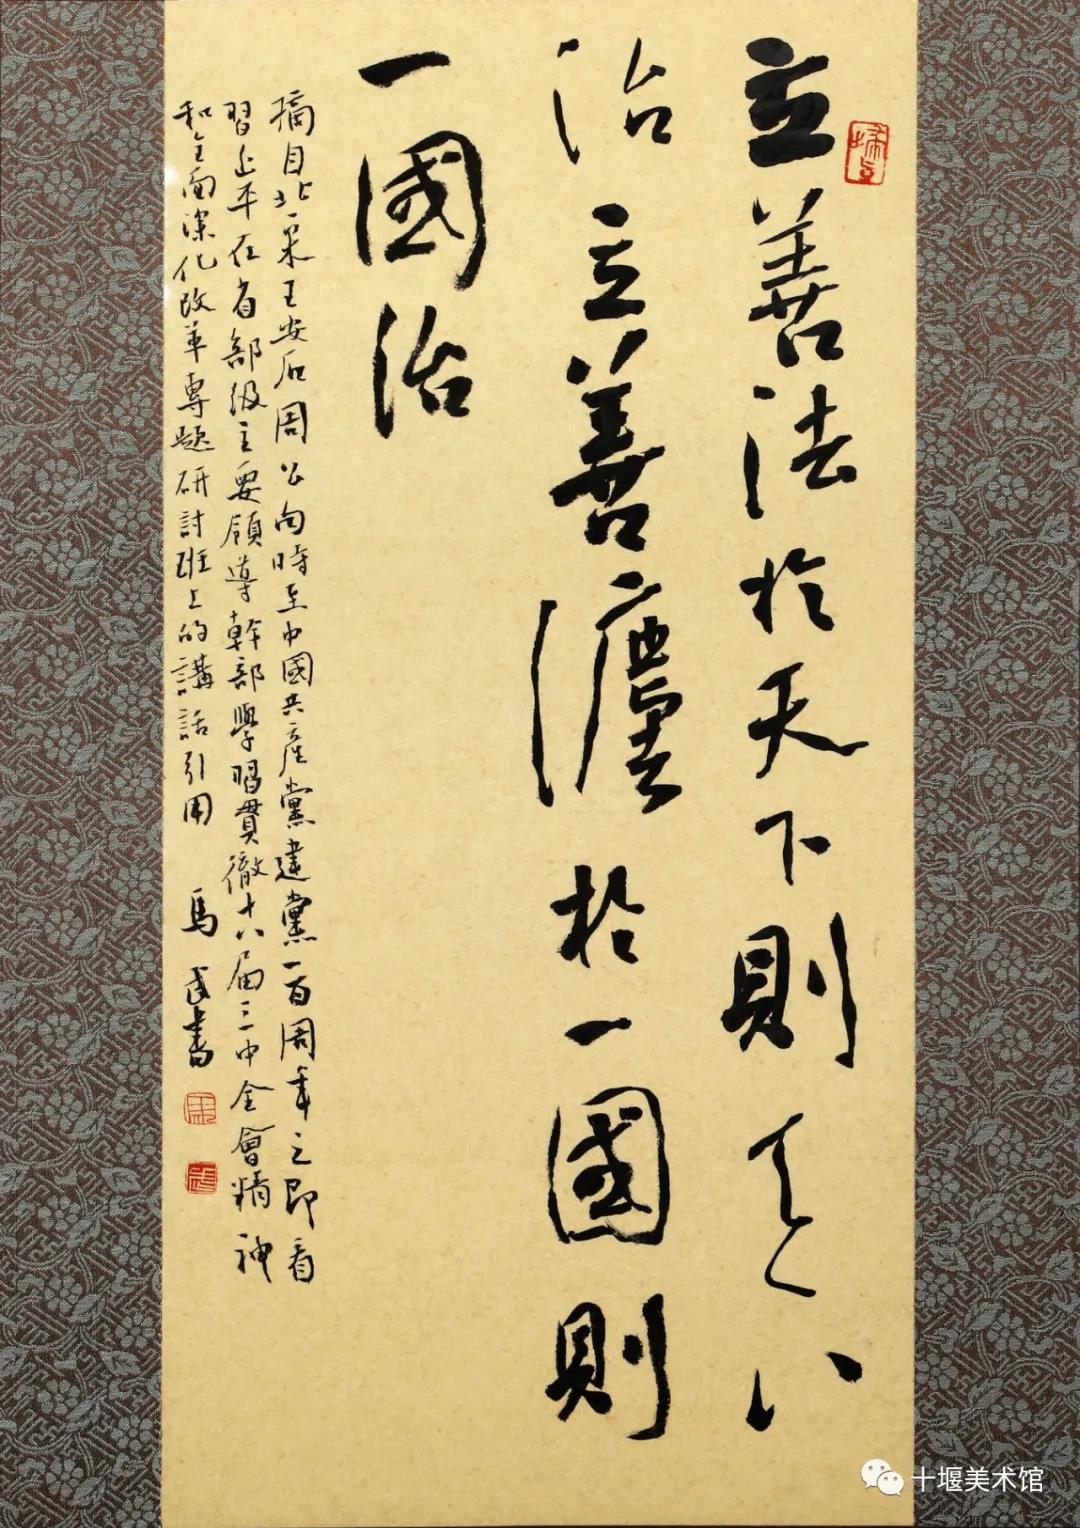 立善法於天下則天下
治立善灋於一國則
一國治
摘自北宋王安石周公句時至中國共產黨建黨一百周年之即看
習近平在省部級主要領導幹部學習貫徹十八届三中全會精神
和全面深化改革專題研討班上的講話引用 馬武書
十堰美术馆